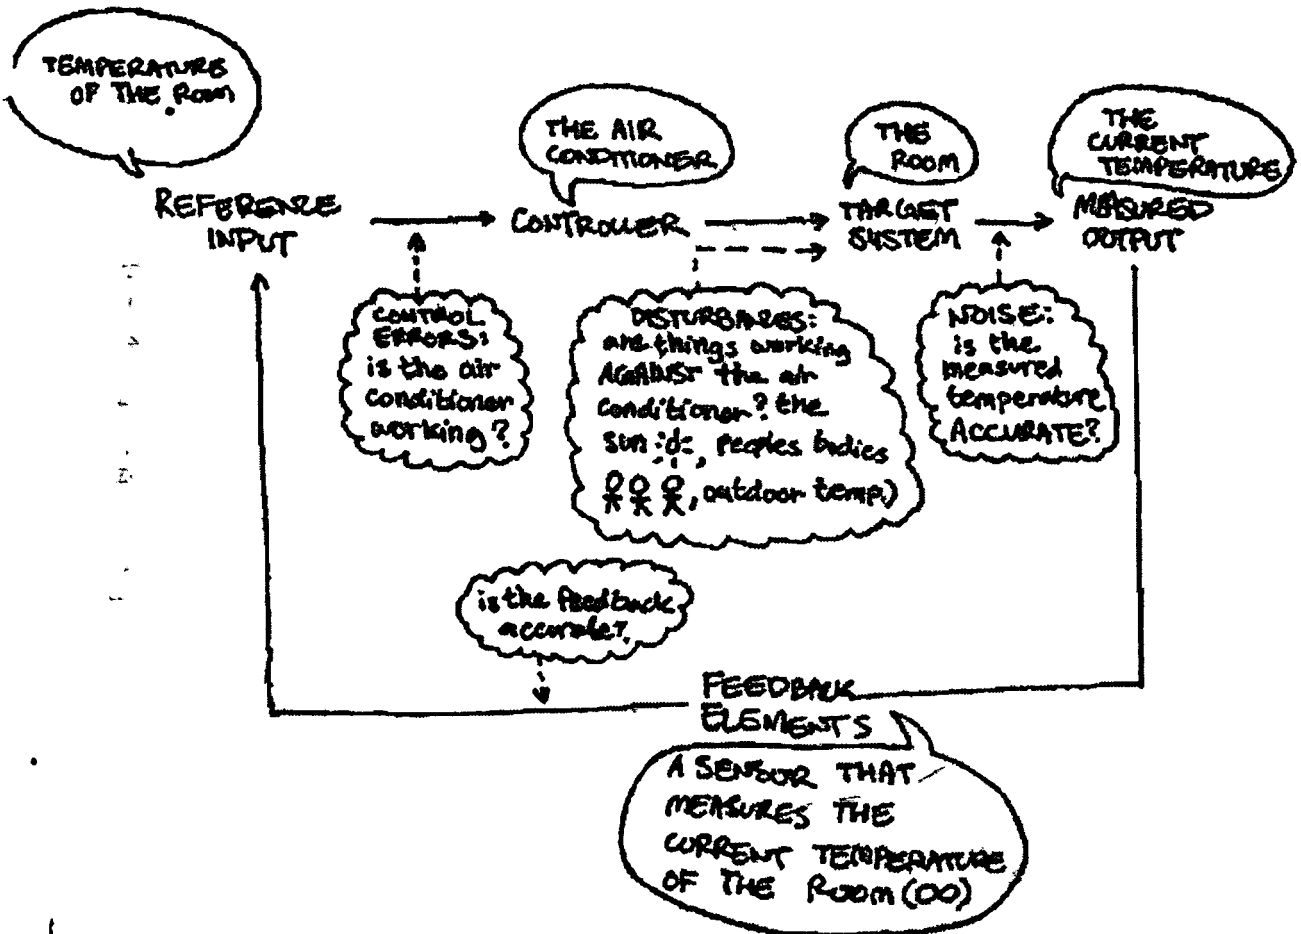 TEMPERATURE
OF THE ROOM
THE AIR
CONDITIONER
THE
ROOM
THE
CURRENT
TEMPERATURE
REFERENCE
INPUT
CONTROLLER
TARGET
SYSTEM
MEASURED
OUTPUT
CONTROL
ERRORS:
is the air
conditioner
working?
DISTURBANCES:
are things working
AGAINST the air
conditioner? the
sun, peoples bodies
, outdoor temp.)
NOISE:
is the
measured
temperature
ACCURATE?
is the feedback
accurate?
FEEDBACK
ELEMENTS
A SENSOR THAT
MEASURES THE
CURRENT TEMPERATURE
OF THE ROOM (OO)